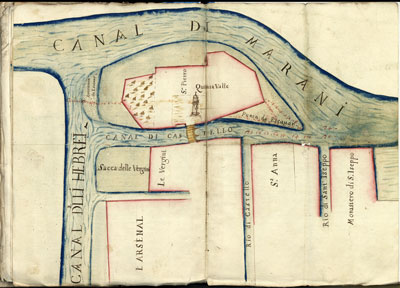 CANAL DI MARANI
S.t Pietro
Quinta Valle
Punta de
CANAL DI CASTELLO
CANAL DELLI HEBREI
Sacca delle Vergini
Le Vergini
L ARSENAL
Rio di Castello
S.ta Anna
Rio di Sant Iseppo
Monastero di S. Iseppo